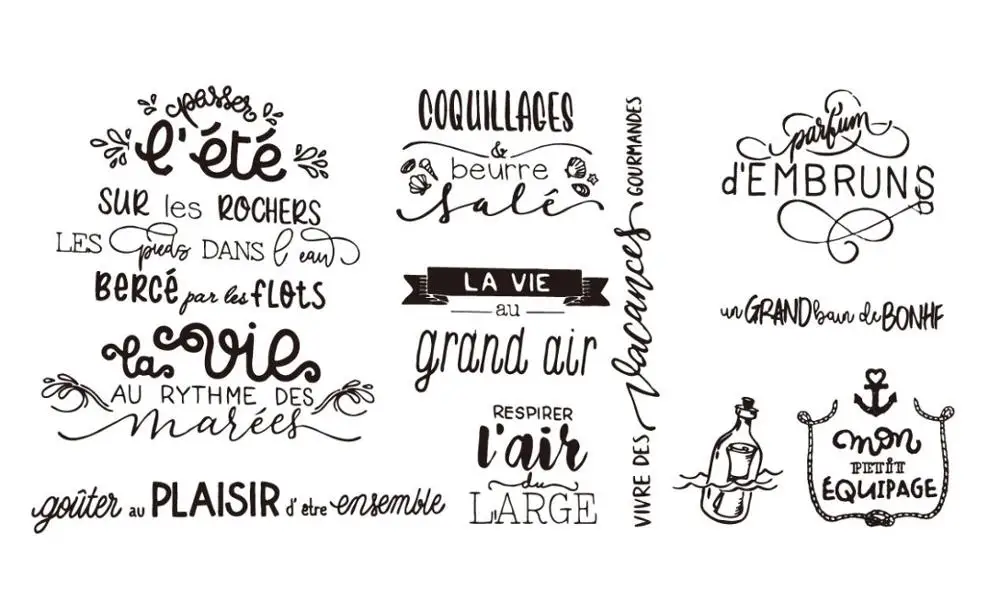 passer
l'été
SUR les ROCHERS
LES pieds DANS l'eau
BERCÉ par les FLOTS
la vie
AU RYTHME DES
marées
goûter au PLAISIR d'être ensemble
COQUILLAGES
&
beurre
salé
LA VIE
au
grand air
RESPIRER
l'air
du
L'ARGE
VIVRE DES Vacances GOURMANDES
parfum
d'EMBRUNS
un GRAND bain de BONHF
mon
PETIT
ÉQUIPAGE